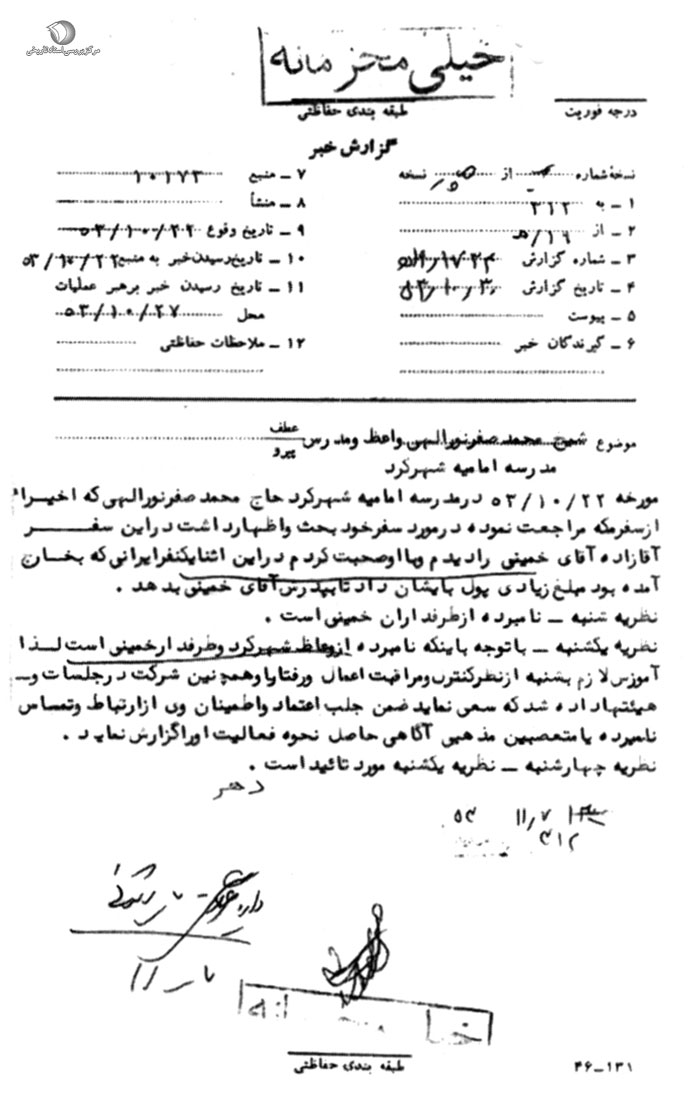 مرکز بررسی اسناد تاریخی
خیلی محرمانه
طبقه بندی حفاظتی
درجه فوریت
گزارش خبر
نسخهٔ شماره از نسخه
۱ ـ به ۳۱۲
۲ ـ از ۱۶/ه
۳ ـ شماره گزارش
۴ ـ تاریخ گزارش
۵ ـ پیوست
۶ ـ گیرندگان خبر
۷ ـ منبع ۱۰۱۷۳
۸ ـ منشأ
۹ ـ تاریخ وقوع ۵۳/۱۰/۲۲
۱۰ ـ تاریخ رسیدن خبر به منبع ۵۳/۱۰/۲۲
۱۱ ـ تاریخ رسیدن خبر برهبر عملیات
محل ۵۳/۱۰/۲۷
۱۲ ـ ملاحظات حفاظتی
موضوع شیخ محمد صفرنورالهی واعظ ومدرس عطف
پیرو
مدرسه امامیه شهرکرد
مورخه ۵۳/۱۰/۲۲ درمدرسه امامیه شهرکرد حاج محمد صفرنورالهی که اخیرا"
ازسفرمکه مراجعت نموده درمورد سفرخود بحث واظهارداشت دراین سفر
آقازاده آقای خمینی رادیدم وبااوصحبت کردم دراین اثنایکنفرایرانی که بخارج
آمده بود مبلغ زیادی پول بایشان داد تابپدرش آقای خمینی بدهد .
نظریه شنبه ـ نامبرده ازطرفداران خمینی است .
نظریه یکشنبه ـ باتوجه باینکه نامبرده ازوعاظ شهرکرد وطرفدارخمینی است لذا
آموزش لازم بشنبه ازنظرکنترل ومراقبت اعمال ورفتاراوهمچنین شرکت درجلسات و
هیئتهاداده شدکه سعی نماید ضمن جلب اعتماد واطمینان وی ازارتباط وتماس
نامبرده بامتعصبین مذهبی آگاهی حاصل نحوه فعالیت اوراگزارش نماید .
نظریه چهارشنبه ـ نظریه یکشنبه مورد تائیداست .
۳۱۲
طبقه بندی حفاظتی
۴۶-۱۳۱